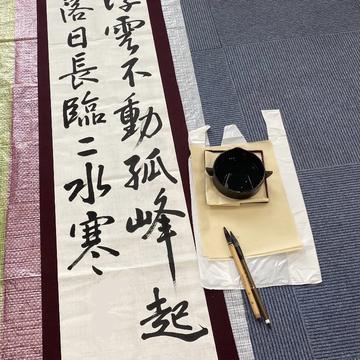 浮雲不動孤峰起
落日長臨二水寒